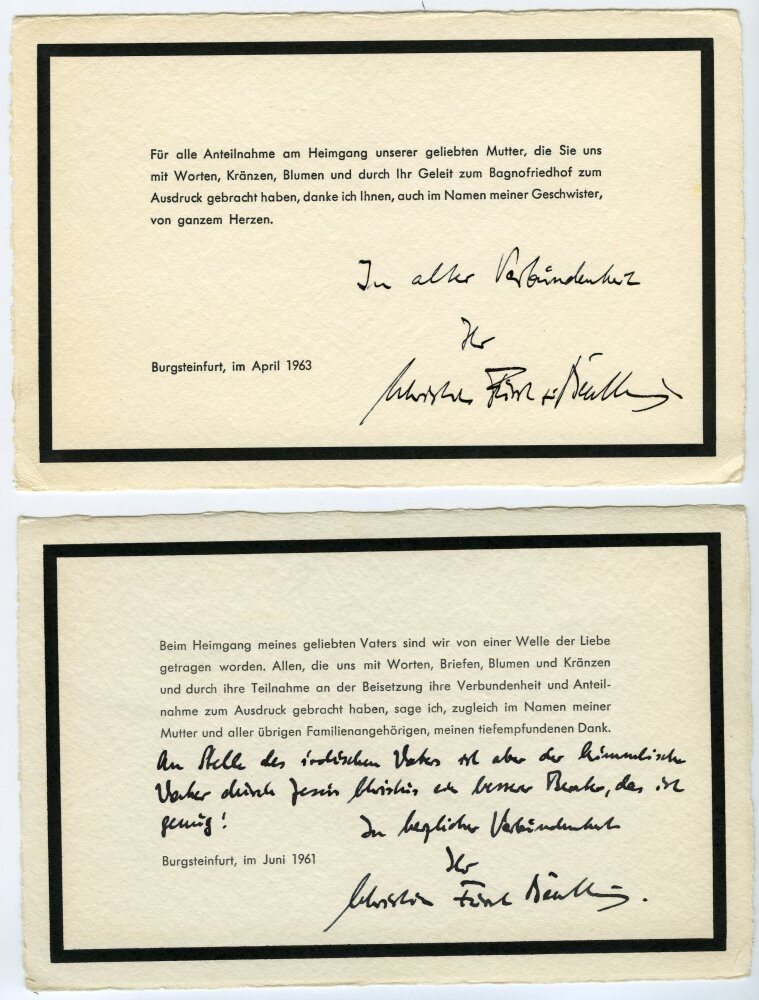 Für alle Anteilnahme am Heimgang unserer geliebten Mutter, die Sie uns
mit Worten, Kränzen, Blumen und durch Ihr Geleit zum Bagnofriedhof zum
Ausdruck gebracht haben, danke ich Ihnen, auch im Namen meiner Geschwister,
von ganzem Herzen.
In alter Verbundenheit
Ihr
Burgsteinfurt, im April 1963
Christian Fürst z. Bentheim
Beim Heimgang meines geliebten Vaters sind wir von einer Welle der Liebe
getragen worden. Allen, die uns mit Worten, Briefen, Blumen und Kränzen
und durch ihre Teilnahme an der Beisetzung ihre Verbundenheit und Anteil-
nahme zum Ausdruck gebracht haben, sage ich, zugleich im Namen meiner
Mutter und aller übrigen Familienangehörigen, meinen tiefempfundenen Dank.
An Stelle des irdischen Vaters ist aber der himmlische
Vater durch Jesus Christus ein besserer Berater, das ist
genug!
In herzlicher Verbundenheit
Burgsteinfurt, im Juni 1961
Ihr
Christian Fürst Bentheim.